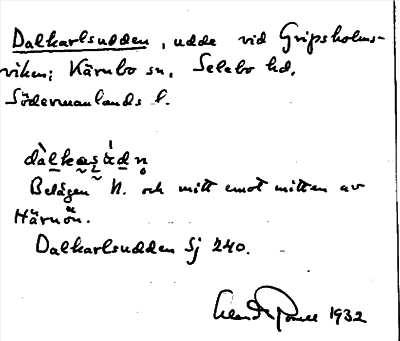 Dalkarlsudden, udde vid Gripsholms-
viken; Kärnbo sn, Selebo hd,
Södermanlands l.
Belägen N. och mitt emot mitten av
Härnön.
Dalkarlsudden Sj 240.
1932